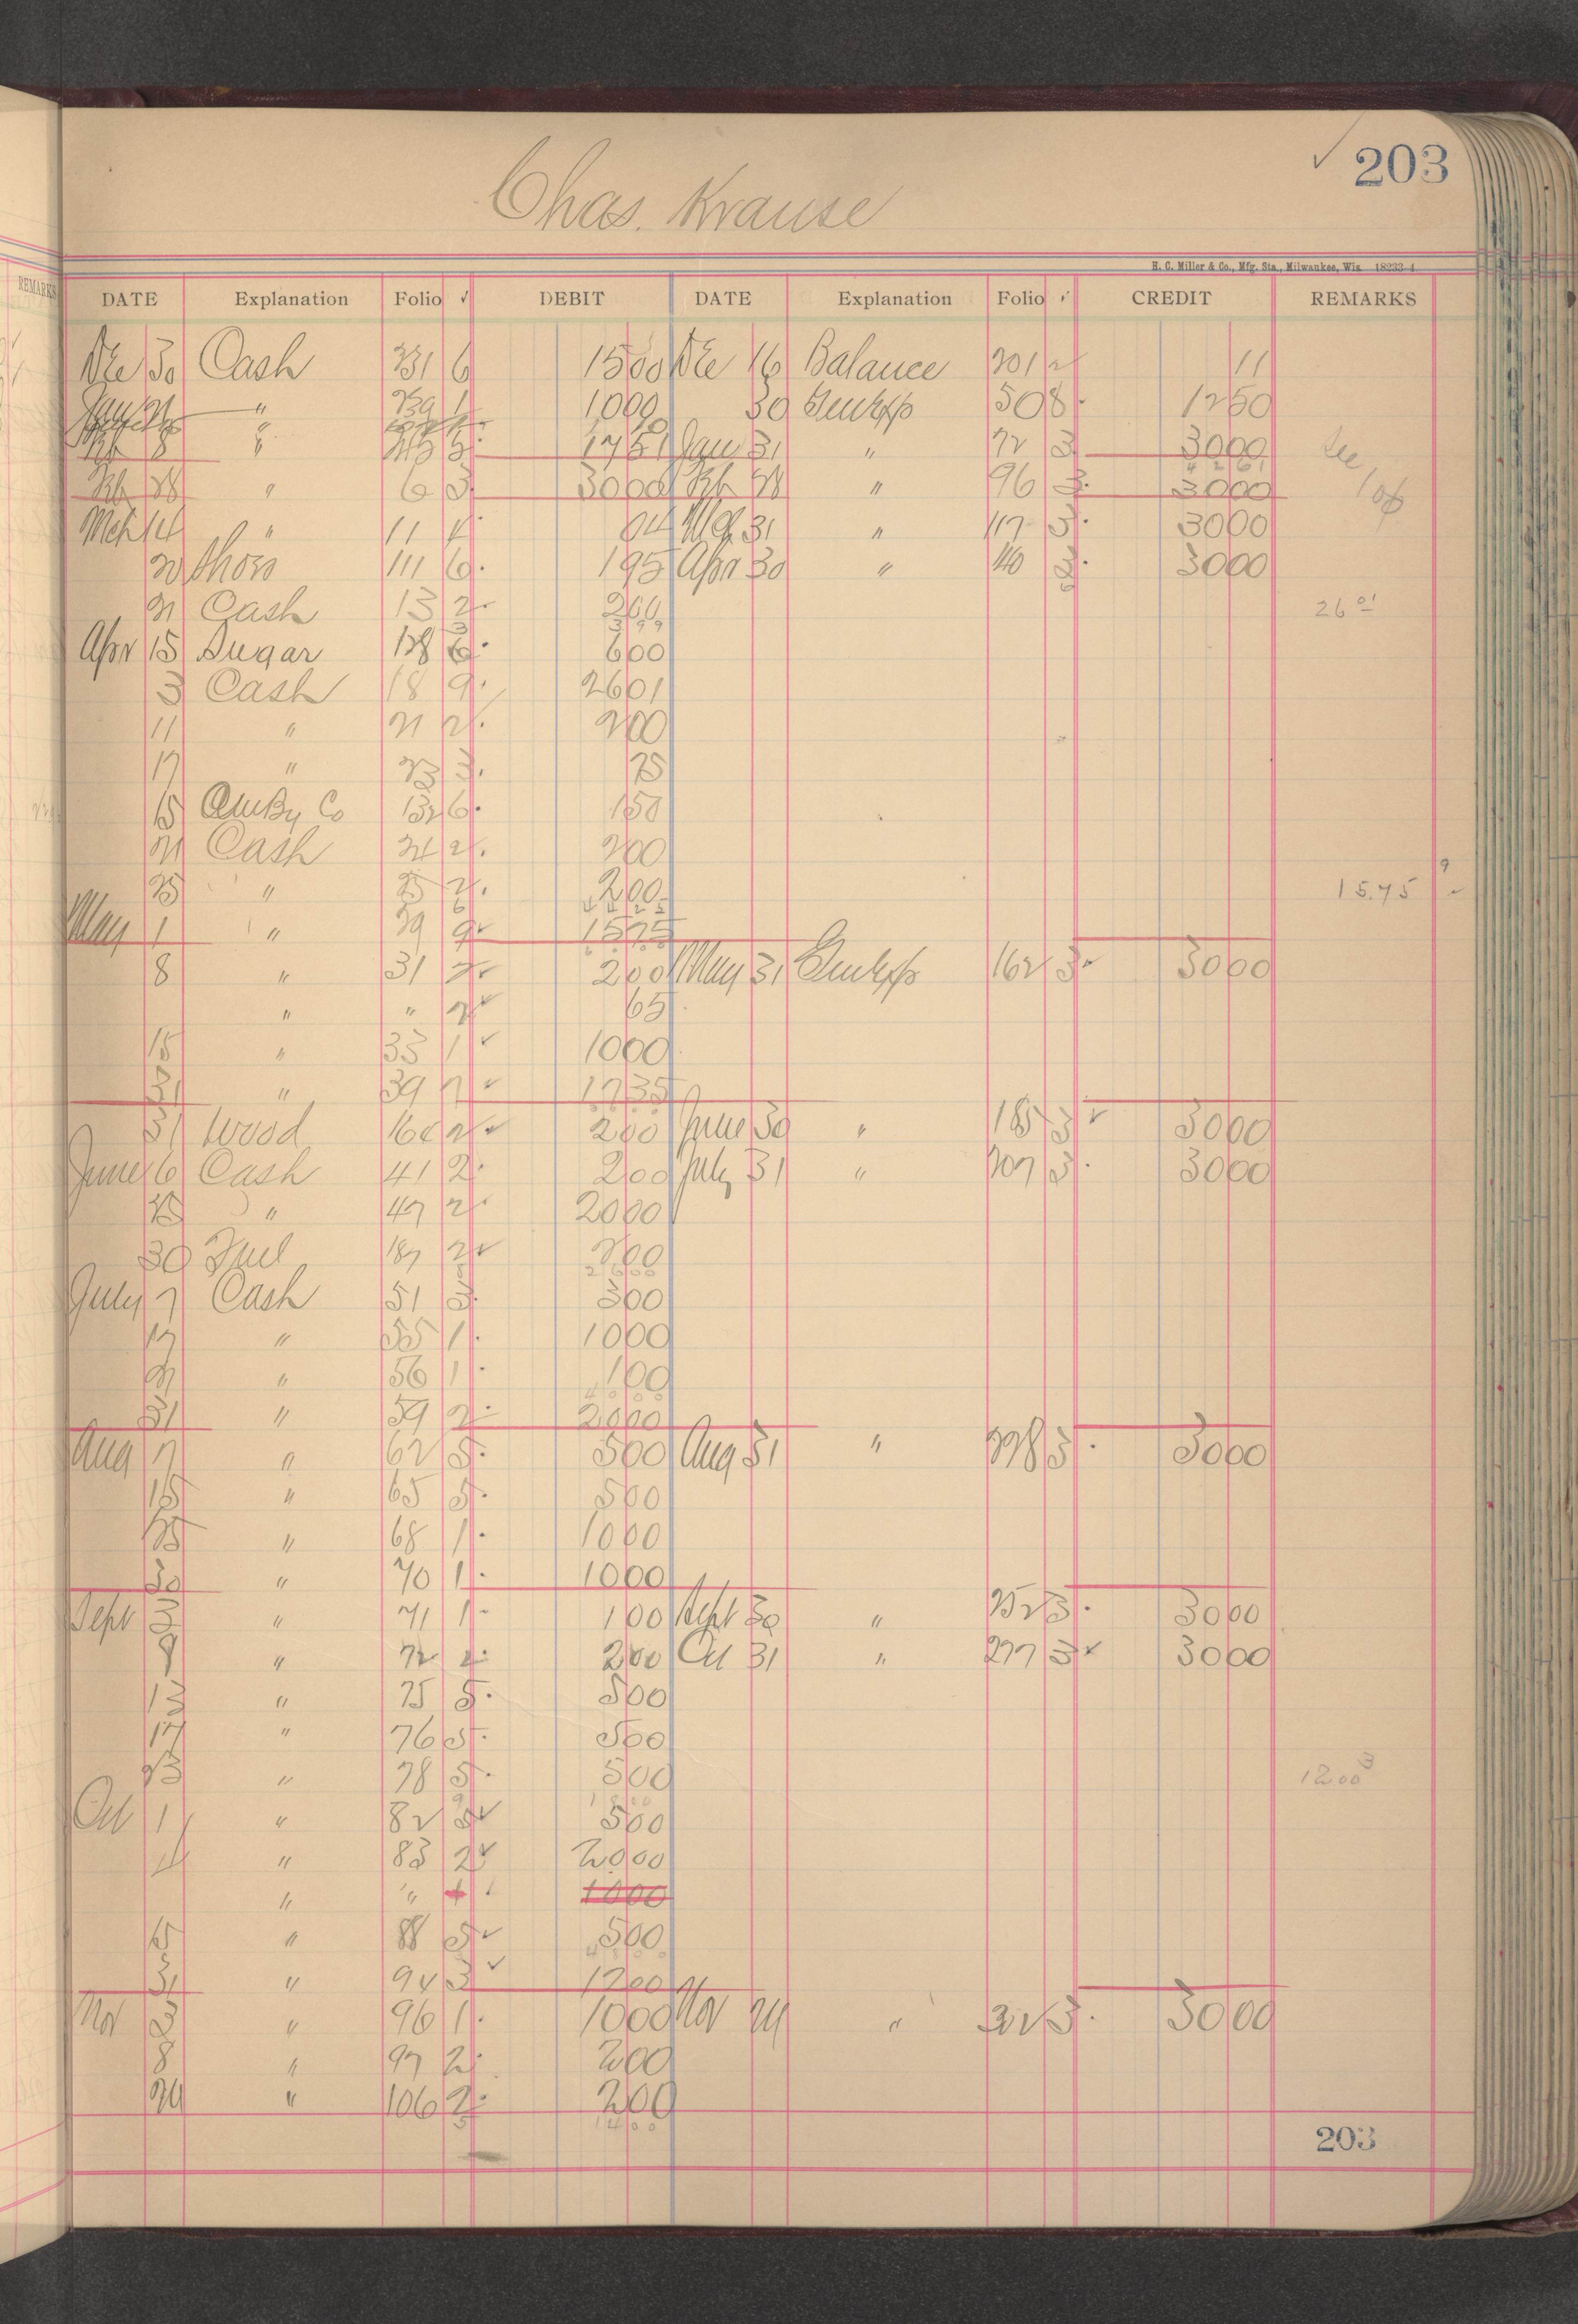 203
Chas. Krause
H. C. Miller & Co., Mfg. Sta., Milwaukee, Wis. 18233-4
REMARKS
DATE Explanation Folio ✓ DEBIT DATE Explanation Folio ✓ CREDIT REMARKS
Dec 30 Cash 231 6 1500 Dec 16 Balance 201 2 11
" 239 1 1000 30 508 1250
8 " 1751 Jan 31 " 72 3 3000 See
4261 106
Feb 28 " 6 3 3000 Feb 28 " 96 3 3000
Mch 14 " 11 04 Mch 31 " 117 3 3000
20 111 6 195 Apr 30 " 140 3 3000
21 Cash 13 2 200 26 01
399
Apr 15 Sugar 128 6 600
3 Cash 18 9 2601
11 " 21 2 200
17 " 23 3 75
15 Co 132 6 150
21 Cash 24 2 200
25 " 25 2 200 15.75
4425
May 1 " 29 9 1575
8 " 31 2 200 May 31 162 3 3000
" " 2 65
15 " 33 1 1000
31 " 39 7 1735
31 Wood 164 2 200 June 30 " 185 3 3000
June 6 Cash 41 2 200 July 31 " 207 3 3000
25 " 47 2 2000
30 Fuel 187 2 200
2600
July 7 Cash 51 3 300
17 " 55 1 1000
21 " 56 1 100
4000
31 " 59 2 2000
Aug 7 " 62 5 500 Aug 31 " 228 3 3000
15 " 65 5 500
25 " 68 1 1000
30 " 70 1 1000
Sept 3 " 71 1 100 Sept 30 " 252 3 3000
9 " 72 2 200 Oct 31 " 277 3 3000
13 " 75 5 500
17 " 76 5 500
23 " 78 5 500 1200 3
1800
Oct 1 " 82 5 500
4 " 83 2 2000
" " 1 1000
15 " 88 5 500
31 " 94 3 1200
Nov 3 " 96 1 1000 Nov 24 " 302 3 3000
8 " 97 2 200
24 " 106 2 200
1400
203